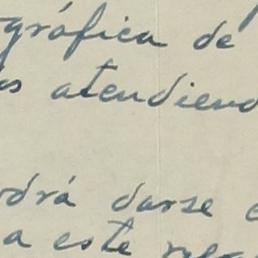 gráfica de
os atendiend
odrá darse e
a este